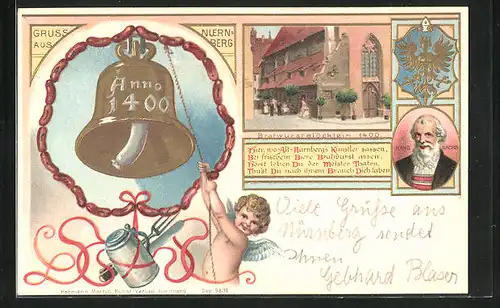 GRUSS AUS
NUERN-
BERG
Anno
1400
Bratwurstglöcklein 1400.
HANS SACHS
Hier, wo Alt-Nürnbergs Künstler sassen,
Bei frischem Biere Bratwurst assen,
Hörst loben Du der Meister Thaten,
Thu'st Du nach ihrem Brauch Dich laben
Viele Grüße aus
Nürnberg sendet
Ihnen
Gebhard Blaser
Hermann Martin, Kunst-Verlag, Nürnberg